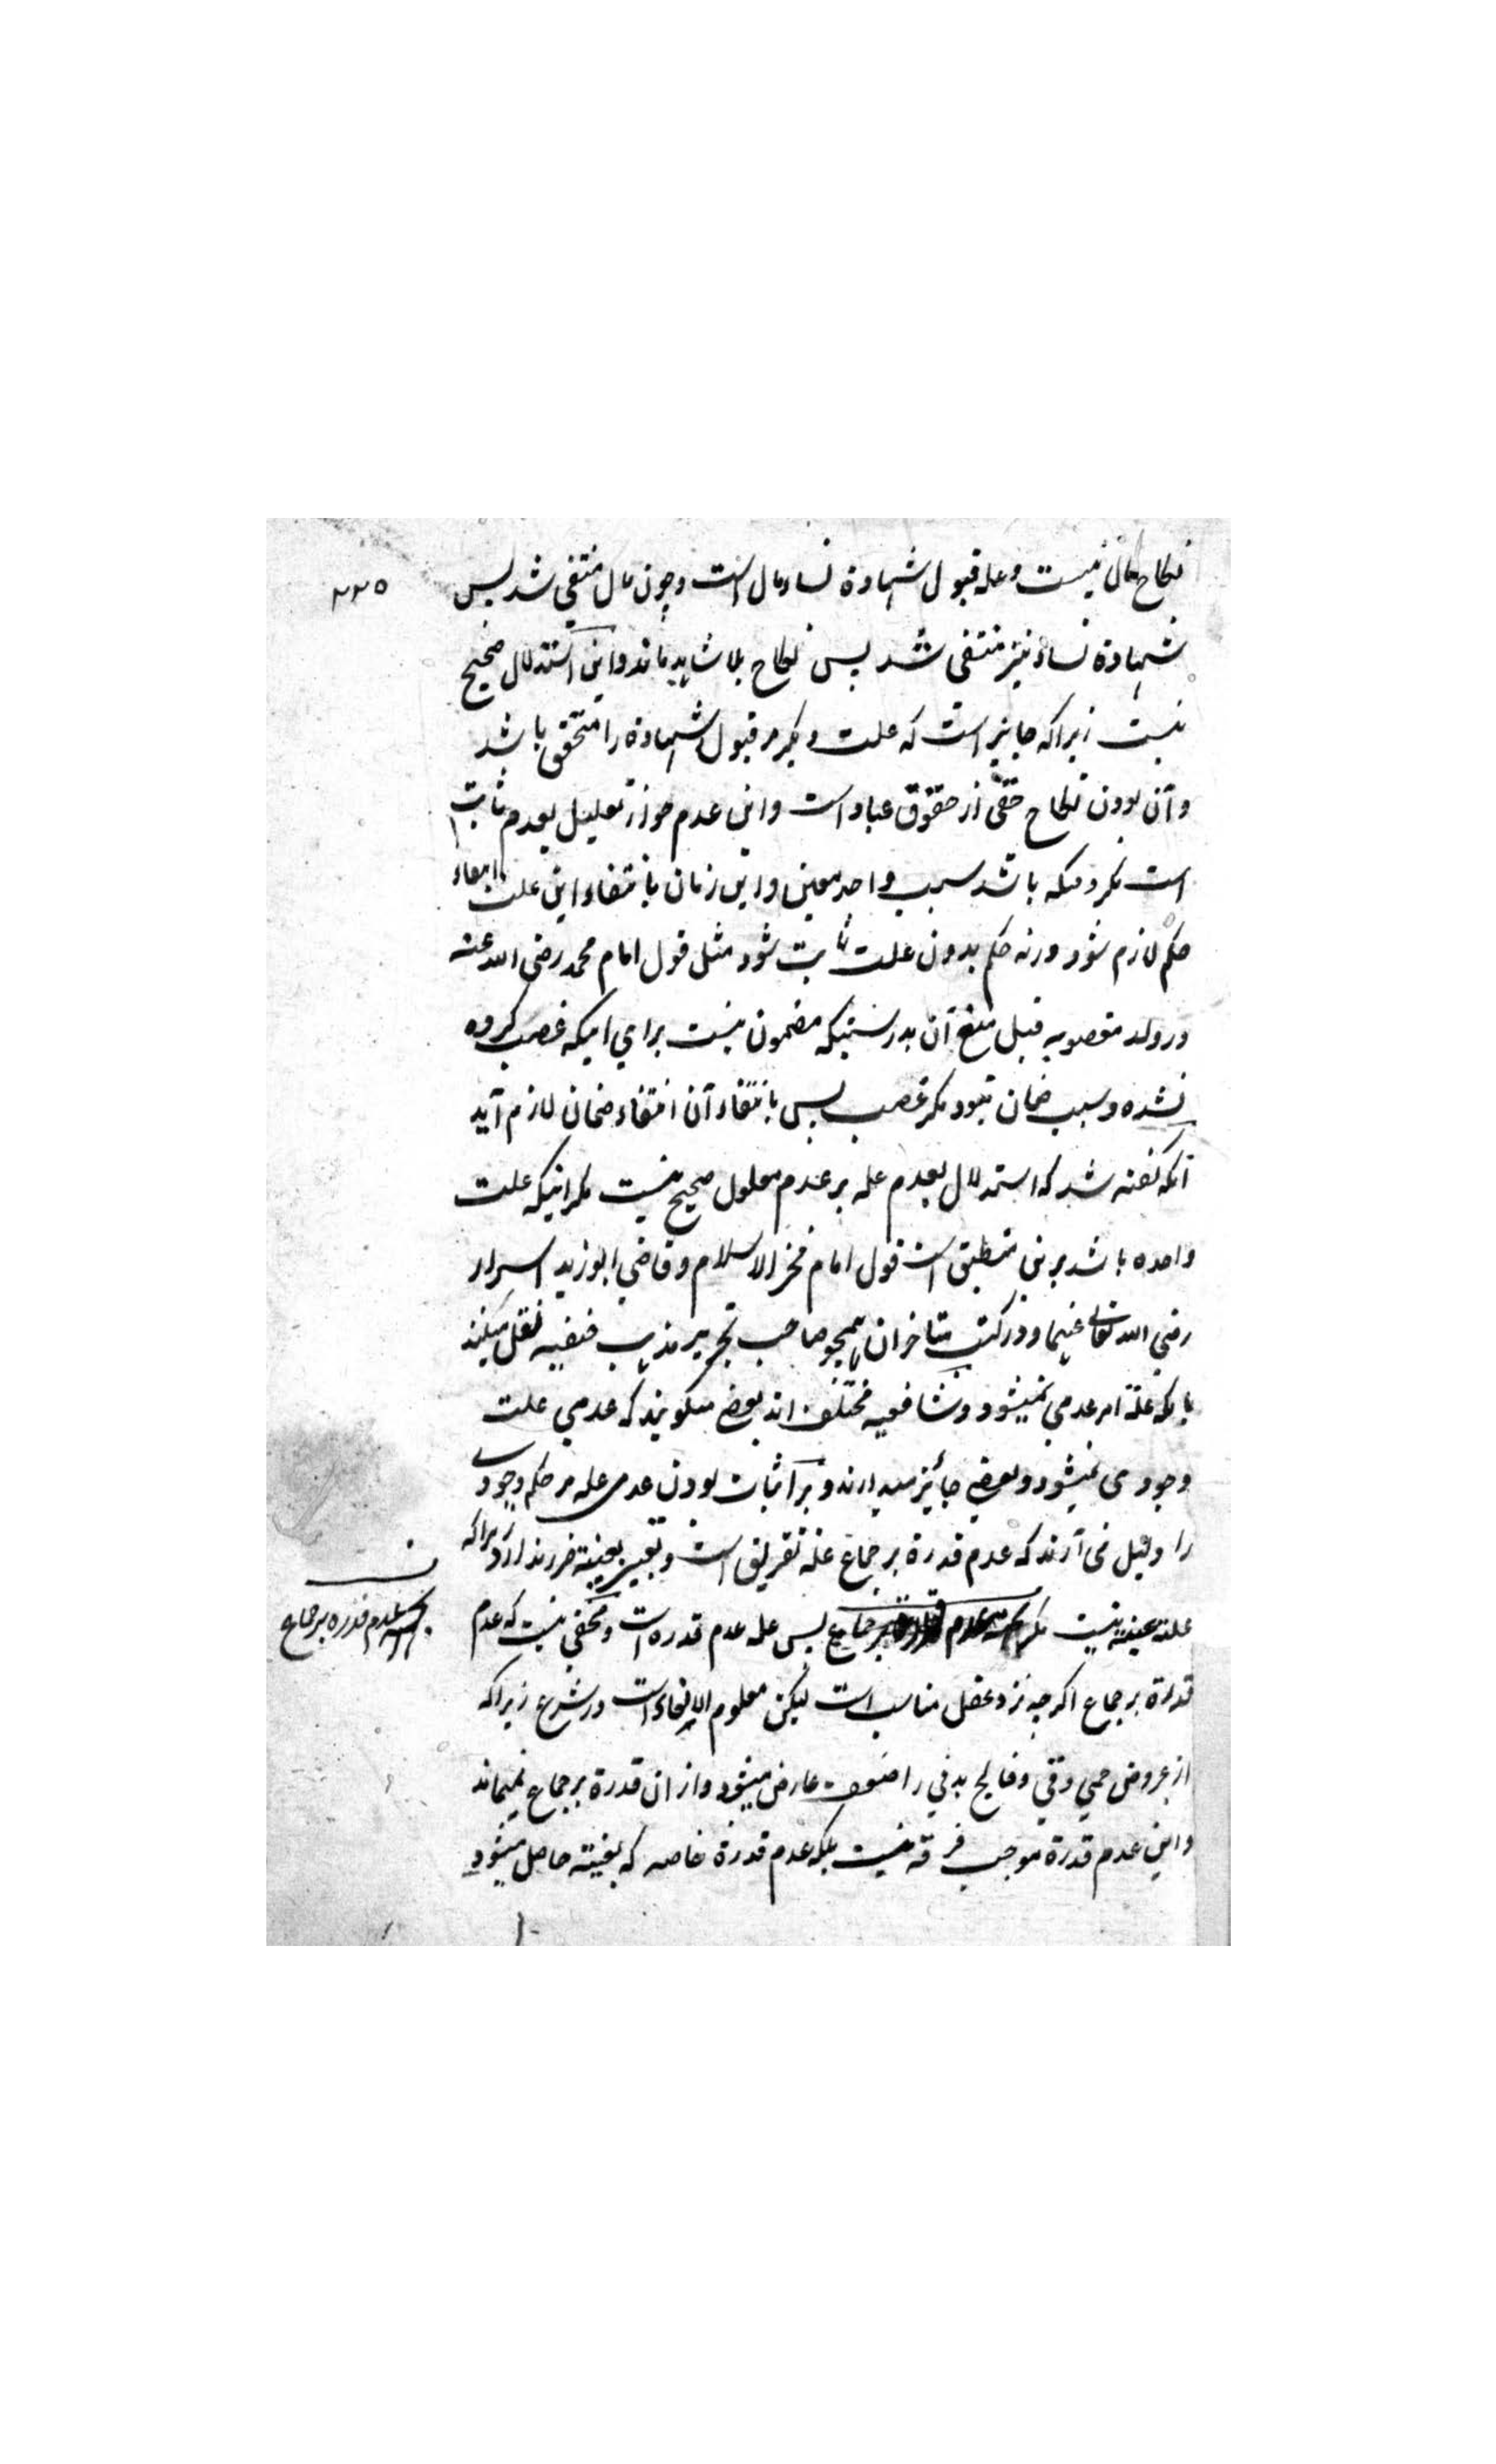 ۲۳۵
نکاح مال نیست و عله قبول شهادة نساء مال است و چون مال منتفی شد پس
شهادة نساء نیز منتفی شد پس نکاح بلا شاهد ماند و این استدلال صحیح
نیست زیرا که جایز است که علت دیگر مر قبول شهادة را متحقق باشد
و آن بودن نکاح حقی از حقوق عباد است و این عدم جواز تعلیل بعدم ثابت
است مگر وقتیکه باشد سبب واحد معین و این زمان بانتفاء این علت انتفاء
حکم لازم شود ورنه حکم بدون علت ثابت شود مثل قول امام محمد رضی الله عنه
در ولد مغصوبه قبل منع آن بدرستیکه مضمون نیست برای اینکه غصب کرده
نشده و سبب ضمان نبود مگر غصب پس بانتفاء آن انتفاء ضمان لازم آید
آنکه گفته شد که استدلال بعدم عله بر عدم معلول صحیح نیست مگر اینکه علت
واحده باشد برین منطبق است قول امام فخر الاسلام و قاضی ابو زید اسرار
رضی الله تعالی عنهما و در کتب متاخران همچو صاحب تحریر مذهب حنفیه نقل میکنند
بانکه علة امر عدمی نمیشود و شافعیه مختلف اند بعضی میگویند که عدمی علت
وجودی نمیشود و بعضی جائز میدارند و بر اثبات بودن عدمی عله مر حکم وجودی
را دلیل می آرند که عدم قدرة بر جماع علة تفریق است و تعبیر بعنینة ضرر ندارد زیرا که
علة عنینة نیست مگر پس عله عدم قدره است و مخفی نیست که عدم
عدم قدره بر جماع
قدرة بر جماع اگرچه نزد عقل مناسب است لیکن معلوم الالغاء است در شرع زیرا که
از عروض حمی و قی و فالج بدنی را ضعف عارض میشود و از ان قدرة بر جماع نمیماند
و این عدم قدرة موجب فرقه نیست بلکه عدم قدرة خاصه که بعنینة حاصل میشود